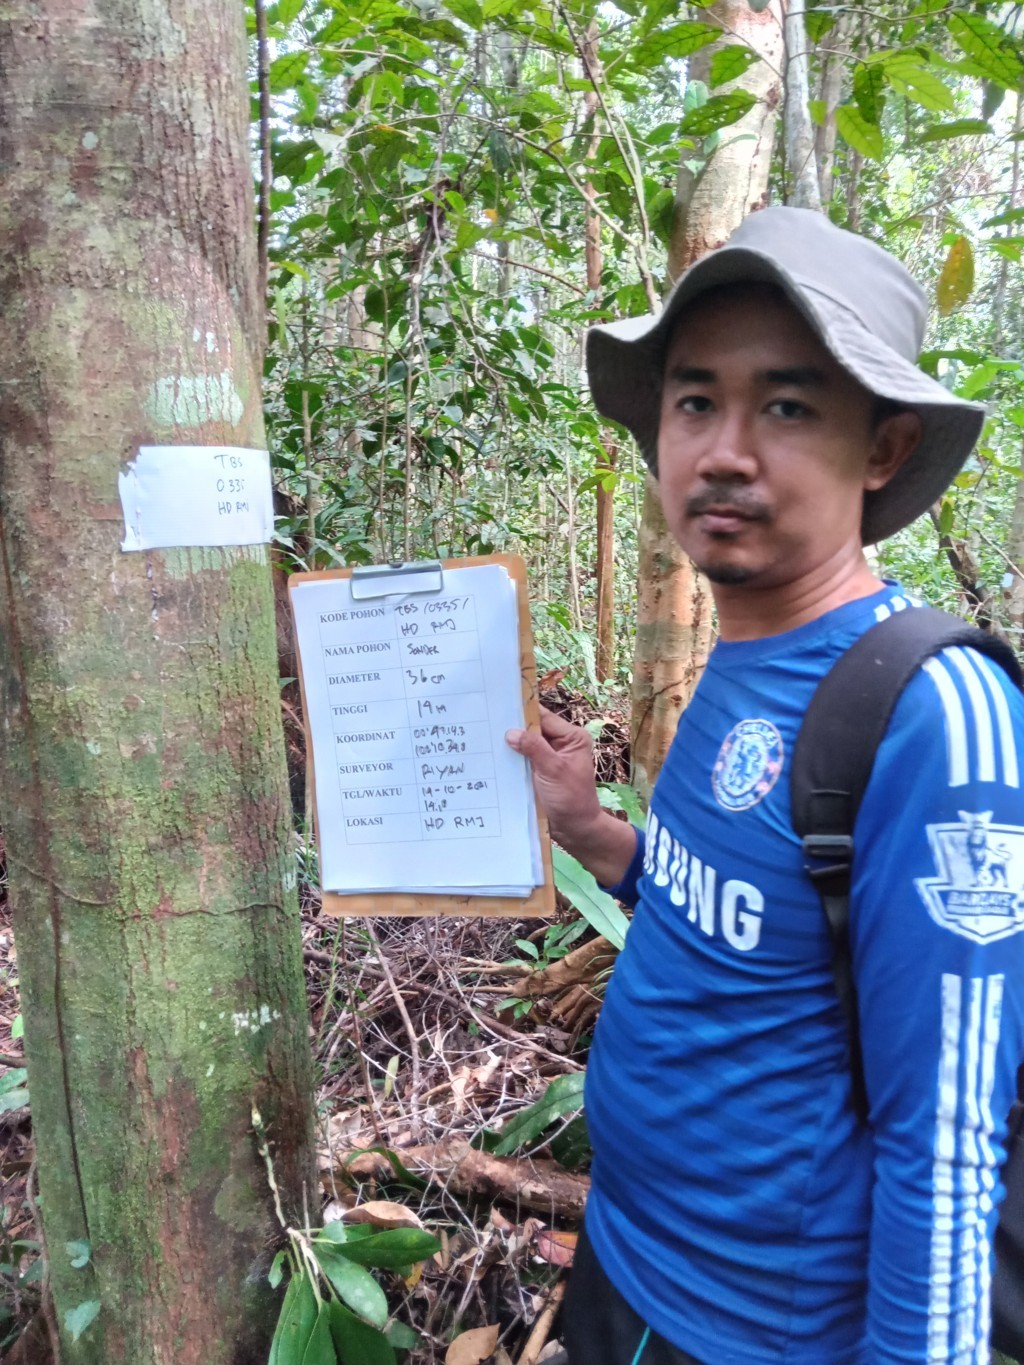 TBS
0335
HD RMJ
KODE POHON TBS/0335/
HD RMJ
NAMA POHON SONDER
DIAMETER 36 cm
TINGGI 19 M
KOORDINAT
SURVEYOR RIYAN
TGL/WAKTU 19-10-2021
14.18
LOKASI HD RMJ
CHELSEA
MSUNG
BARCLAYS